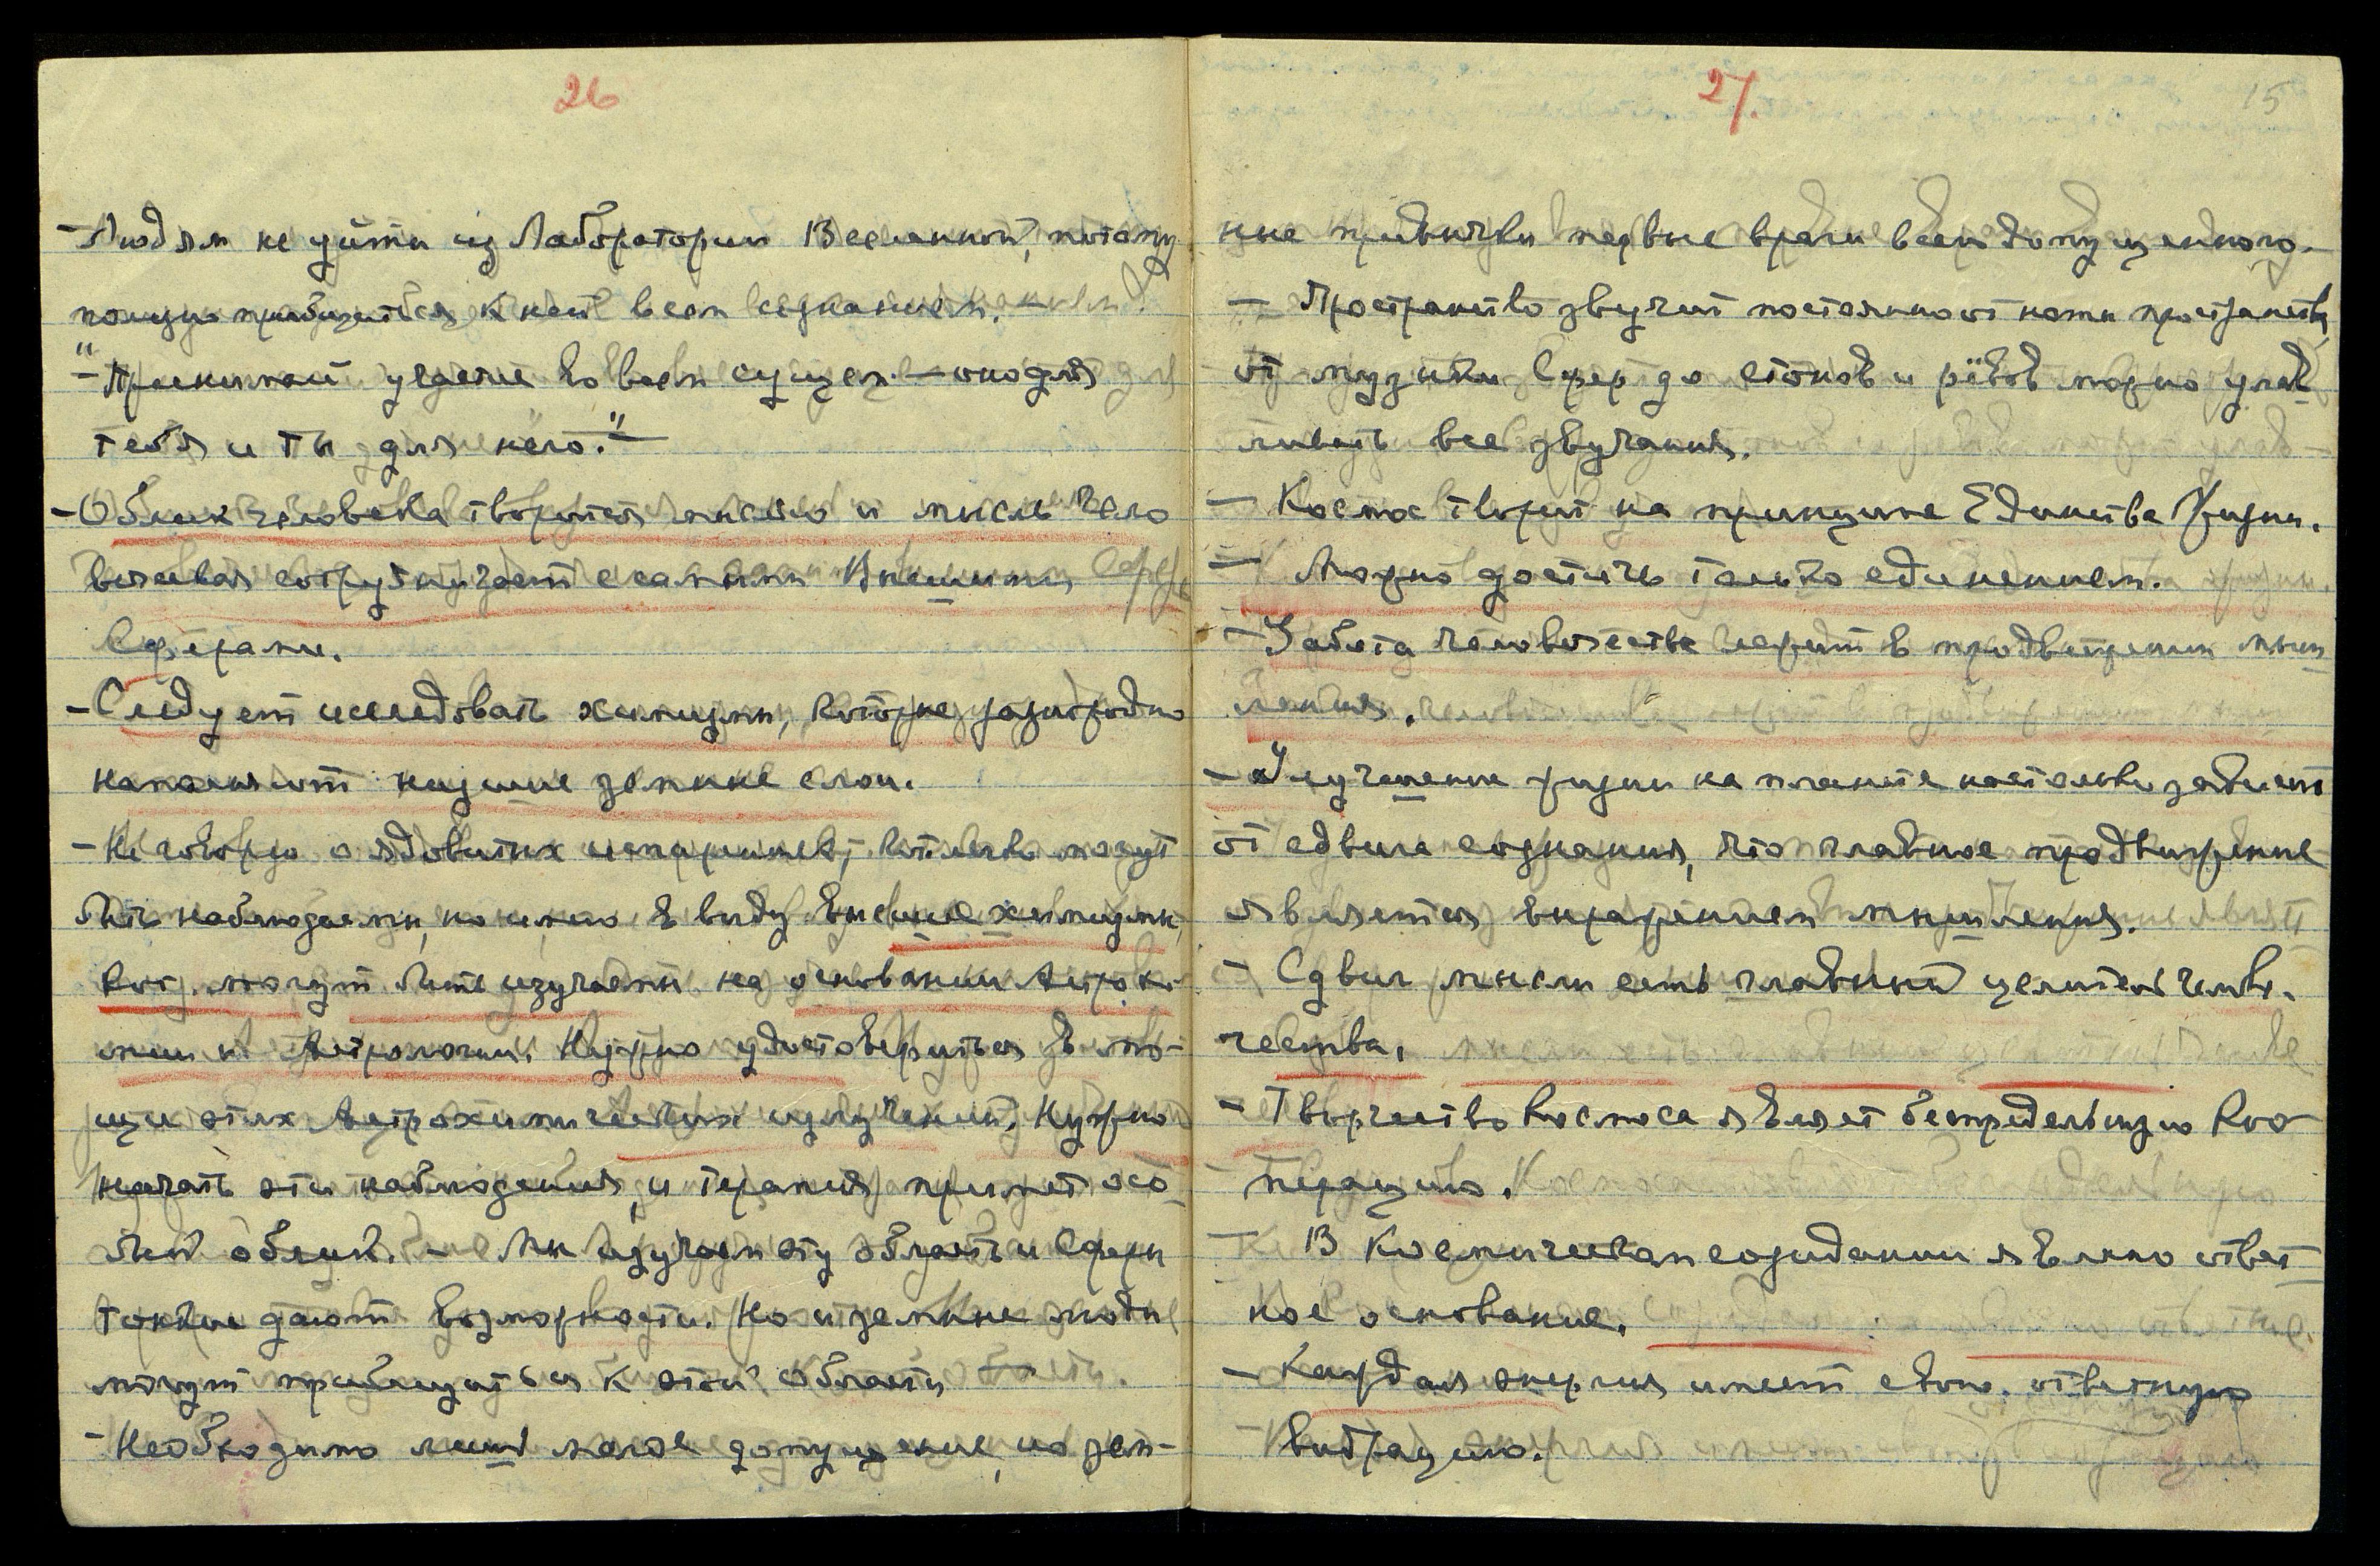 26
– Людям не уйти из Лаборатории Вселенной, потому
полезно приблизиться к ней всем сознанием. –
"– Принимай участие во всем сущем – оно для
тебя и ты для него." –
– Облик человека творится мыслью и мысль чело
веческая сотрудничает с самыми Высшими
Сферами.
– Следует исследовать химизмы, которые разнородно
наполняют низшие земные слои.
– Не говорю о ядовитых испарениях, которые легко могут
быть наблюдаемы, но имею в виду высшие химизмы,
кот. могут быть изучаемы на основании Астрохи-
мии и Астрологии. Нужно удостовериться в мо-
щи этих Астрохимических излучений. Нужно
начать эти наблюдения, и терапия примет осо-
бый облик. – Мы изучаем эту область и Сферы
тонкие дают возможности. Но и земные люди
могут приблизиться к этой области –
– Необходимо лишь малое допущение, но зем-
27.
15
ные привычки первые враги всего допущенного.
– Пространство звучит постоянно от ноты пространств,
от музыки Сфер до стонов и рёвов можно улав-
ливать все звучания.
– Космос творит на принципе Единства Жизни.
– Можно достичь только единением.
– Забота человечества лежит в продвижении мыш
ления.
– Улучшение жизни на планете настолько зависит
от сдвига сознания, что главное продвижение
является выражением мышления.
– Сдвиг мысли есть главный целитель челов.
чества.
– Творчество Космоса являет беспредельную Коо
перацию.
– В Космическом созидании явлено ответ
ное основание.
– Каждая энергия имеет свою ответную
вибрацию.